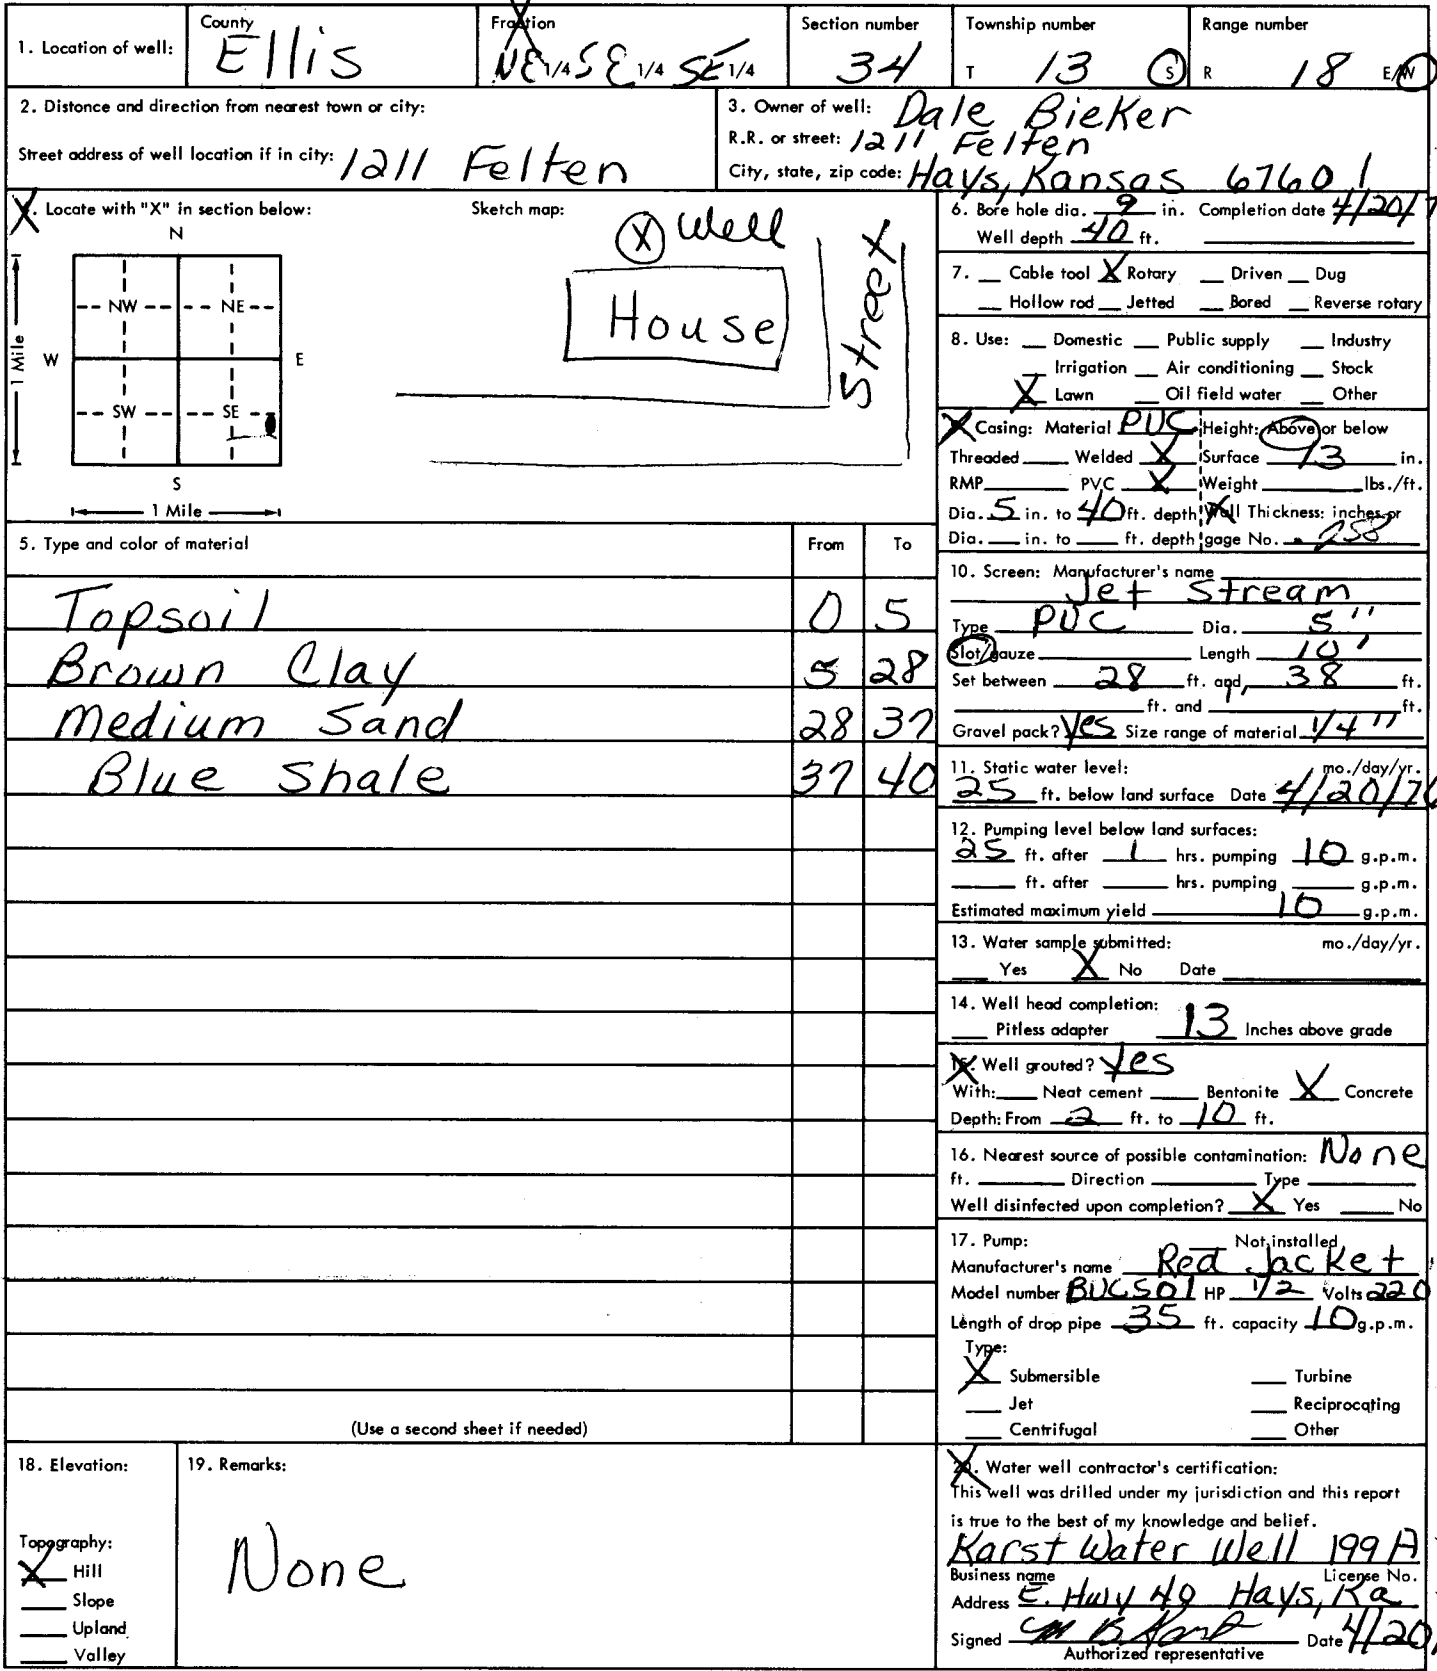 1. Location of well: County Ellis Fraction NE 1/4 SE 1/4 SE 1/4 Section number 34 Township number T 13 S Range number R 18 E/W
2. Distance and direction from nearest town or city:
Street address of well location if in city: 1211 Felten
3. Owner of well: Dale Bieker
R.R. or street: 1211 Felten
City, state, zip code: Hays, Kansas 67601
4. Locate with "X" in section below: Sketch map:
N
NW NE
W E
SW SE
S
1 Mile
1 Mile
X Well
House
Street
5. Type and color of material From To
Topsoil 0 5
Brown Clay 5 28
Medium Sand 28 37
Blue Shale 37 40
(Use a second sheet if needed)
6. Bore hole dia. 9 in. Completion date 4/20/7
Well depth 40 ft.
7. Cable tool X Rotary Driven Dug
Hollow rod Jetted Bored Reverse rotary
8. Use: Domestic Public supply Industry
Irrigation Air conditioning Stock
X Lawn Oil field water Other
Casing: Material PVC Height: Above or below
Threaded Welded X Surface 13 in.
RMP PVC X Weight lbs./ft.
Dia. 5 in. to 40 ft. depth Wall Thickness: inches or
Dia. in. to ft. depth gage No. .258
10. Screen: Manufacturer's name
Jet Stream
Type PVC Dia. 5"
Slot/gauze Length 10'
Set between 28 ft. and 38 ft.
ft. and ft.
Gravel pack? Yes Size range of material 1/4"
11. Static water level: mo./day/yr.
25 ft. below land surface Date 4/20/76
12. Pumping level below land surfaces:
25 ft. after 1 hrs. pumping 10 g.p.m.
ft. after hrs. pumping g.p.m.
Estimated maximum yield 10 g.p.m.
13. Water sample submitted: mo./day/yr.
Yes X No Date
14. Well head completion:
Pitless adapter 13 Inches above grade
15. Well grouted? Yes
With: Neat cement Bentonite X Concrete
Depth: From 2 ft. to 10 ft.
16. Nearest source of possible contamination: None
ft. Direction Type
Well disinfected upon completion? X Yes No
17. Pump: Not installed
Manufacturer's name Red Jacket
Model number BUC501 HP 1/2 Volts 220
Length of drop pipe 35 ft. capacity 10 g.p.m.
Type:
X Submersible Turbine
Jet Reciprocating
Centrifugal Other
18. Elevation:
Topography:
X Hill
Slope
Upland
Valley
19. Remarks:
None
20. Water well contractor's certification:
This well was drilled under my jurisdiction and this report
is true to the best of my knowledge and belief.
Karst Water Well 199A
Business name License No.
Address E. Hwy 40 Hays, Ka
Signed Date 4/20/
Authorized representative